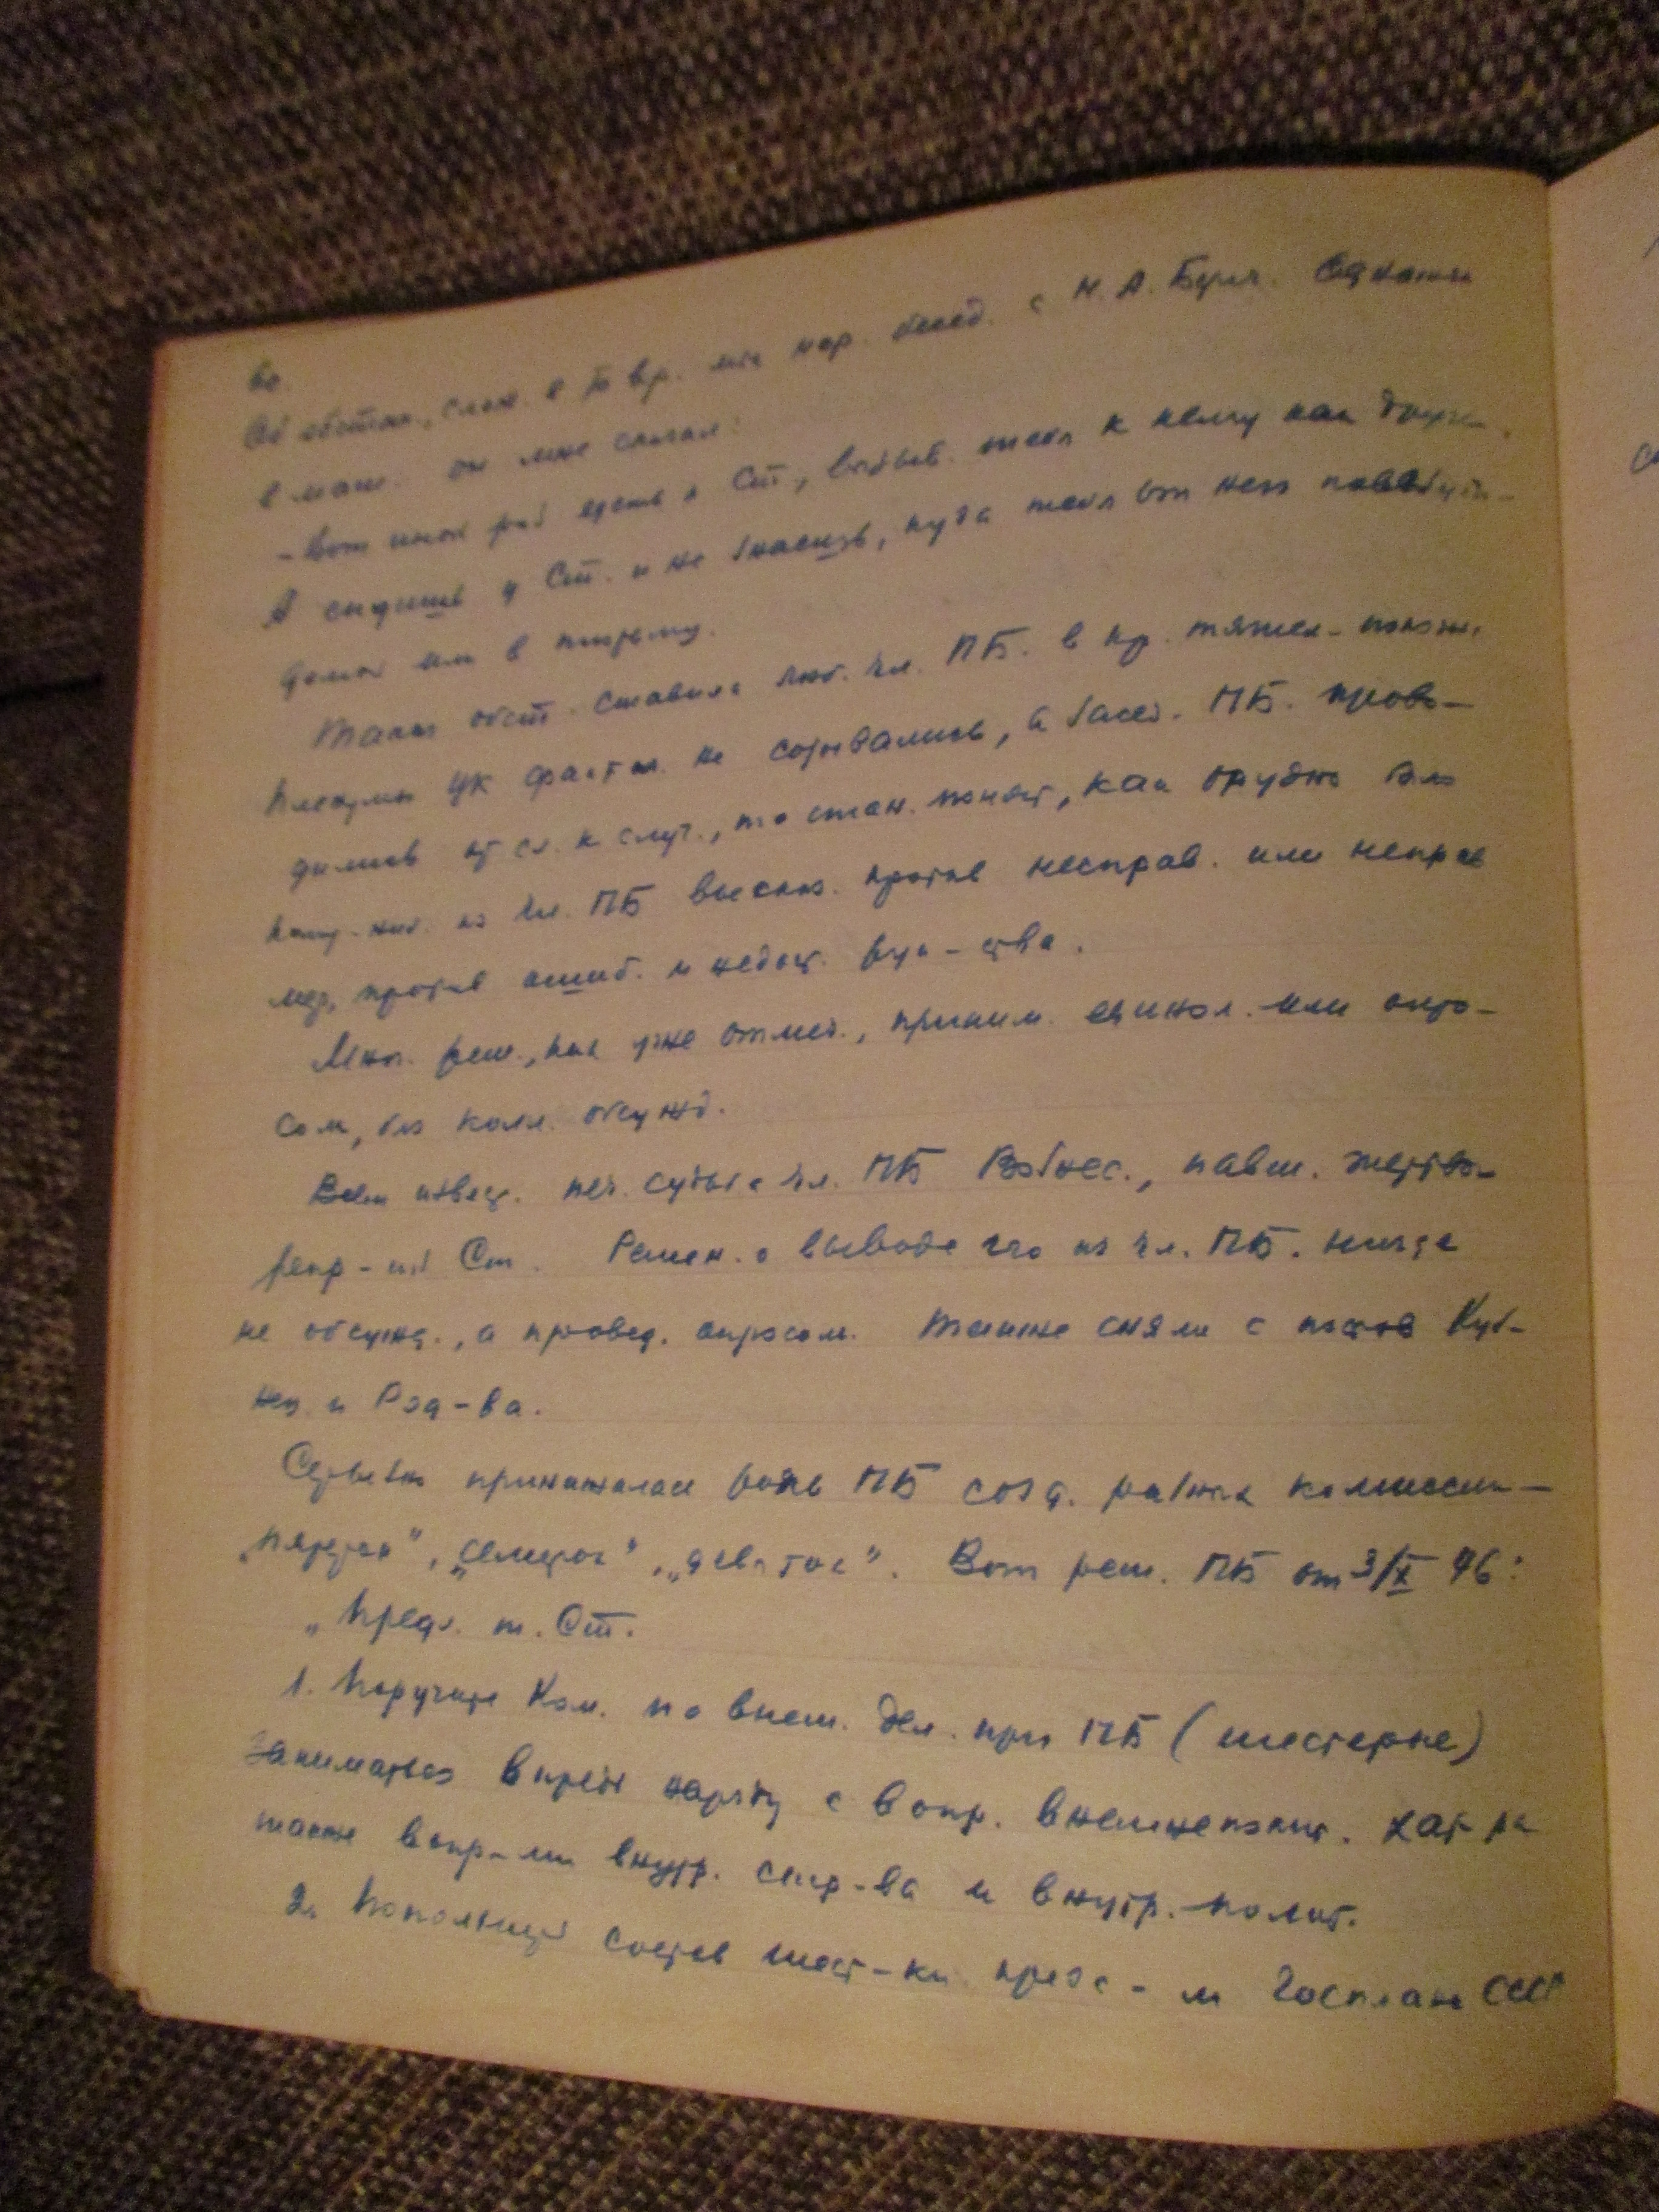 во
Об обстан., слож. в то вр. мы нер. бесед. с Н. А. Булг. Однажды
в маш. он мне сказал:
– Вот иной раз едешь к Ст., вызыв. тебя к нему как друга.
А сидишь у Ст. и не знаешь, куда тебя от него повезут
домой или в тюрьму.
Такая обст. ставила люб. чл. ПБ. в кр. тяжел. полож.
Пленумы ЦК фактич. не созывались, а засед. ПБ. прово-
дились от сл. к случ., то стан. понят, как трудно было
кому-ниб. из чл. ПБ высказ. против несправ. или неправ
мер, против ошиб. и недост. рук-ства.
Мног. реш., как уже отмеч., приним. единол. или опро-
сом, без колл. обсужд.
Всем извест. печ. судьба чл. ПБ Вознес., павш. жертвой
репр-ий Ст. Решен. о выводе его из чл. ПБ. нигде
не обсужд., а провед. опросом. Также сняли с постов Куз-
нец. и Род-ва.
Серьезно принижалась роль ПБ созд. разных комиссий –
„пятерок”, „семерок”, „девяток”. Вот реш. ПБ от 3/X 46:
„Предл. т. Ст.
1. Поручить Ком. по внеш. дел. при ПБ (шестерке)
заниматься впредь наряду с вопр. внешнеполит. хар-ра
также вопр-ми внутр. стр-ва и внутр. полит.
2. Пополнить состав шест-ки предс-м Госплана СССР